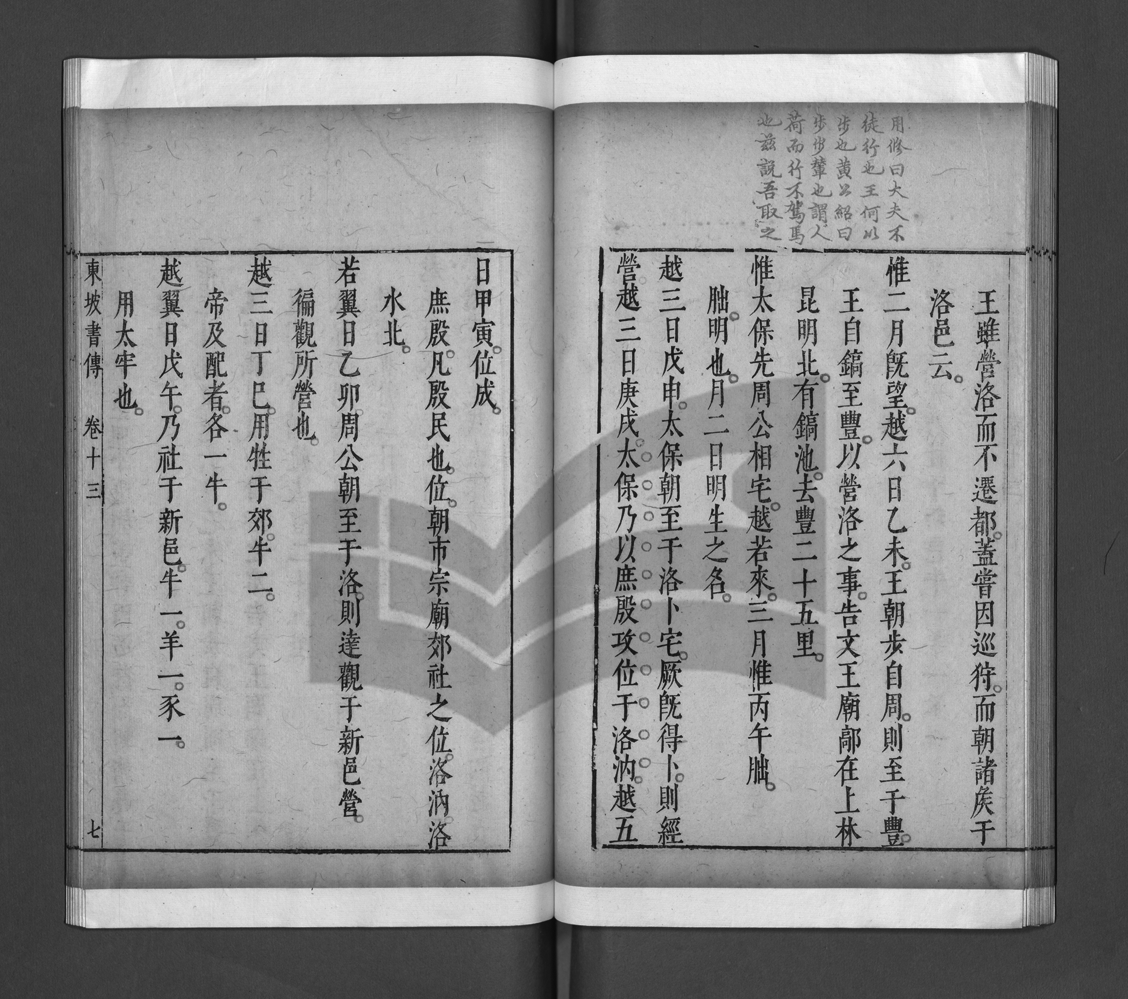 用修曰大夫不
徒行也王何以
步也黄公紹曰
步步輦也謂人
荷而行不駕馬
也兹説吾取之
王雖營洛而不遷都。蓋嘗因巡狩。而朝諸矦于
洛邑云。
惟二月旣望。越六日乙未。王朝步自周。則至于豐。
王自鎬至豐。以營洛之事。告文王廟。鄗在上林
昆明北。有鎬池。去豐二十五里。
惟太保先周公相宅。越若來。三月惟丙午朏。
朏。明也。月二日明生之名。
越三日戊申。太保朝至于洛卜宅。厥旣得卜。則經
營。越三日庚戌。太保乃以庶殷攻位于洛汭。越五
日甲寅。位成。
庶殷。凡殷民也。位。朝市宗廟郊社之位。洛汭。洛
水北。
若翼日乙卯。周公朝至于洛。則達觀于新邑營。
徧觀所營也。
越三日丁巳。用牲于郊。牛二。
帝及配者。各一牛。
越翼日戊午。乃社于新邑。牛一。羊一。豕一。
用太牢也。
東坡書傳 卷十三 七